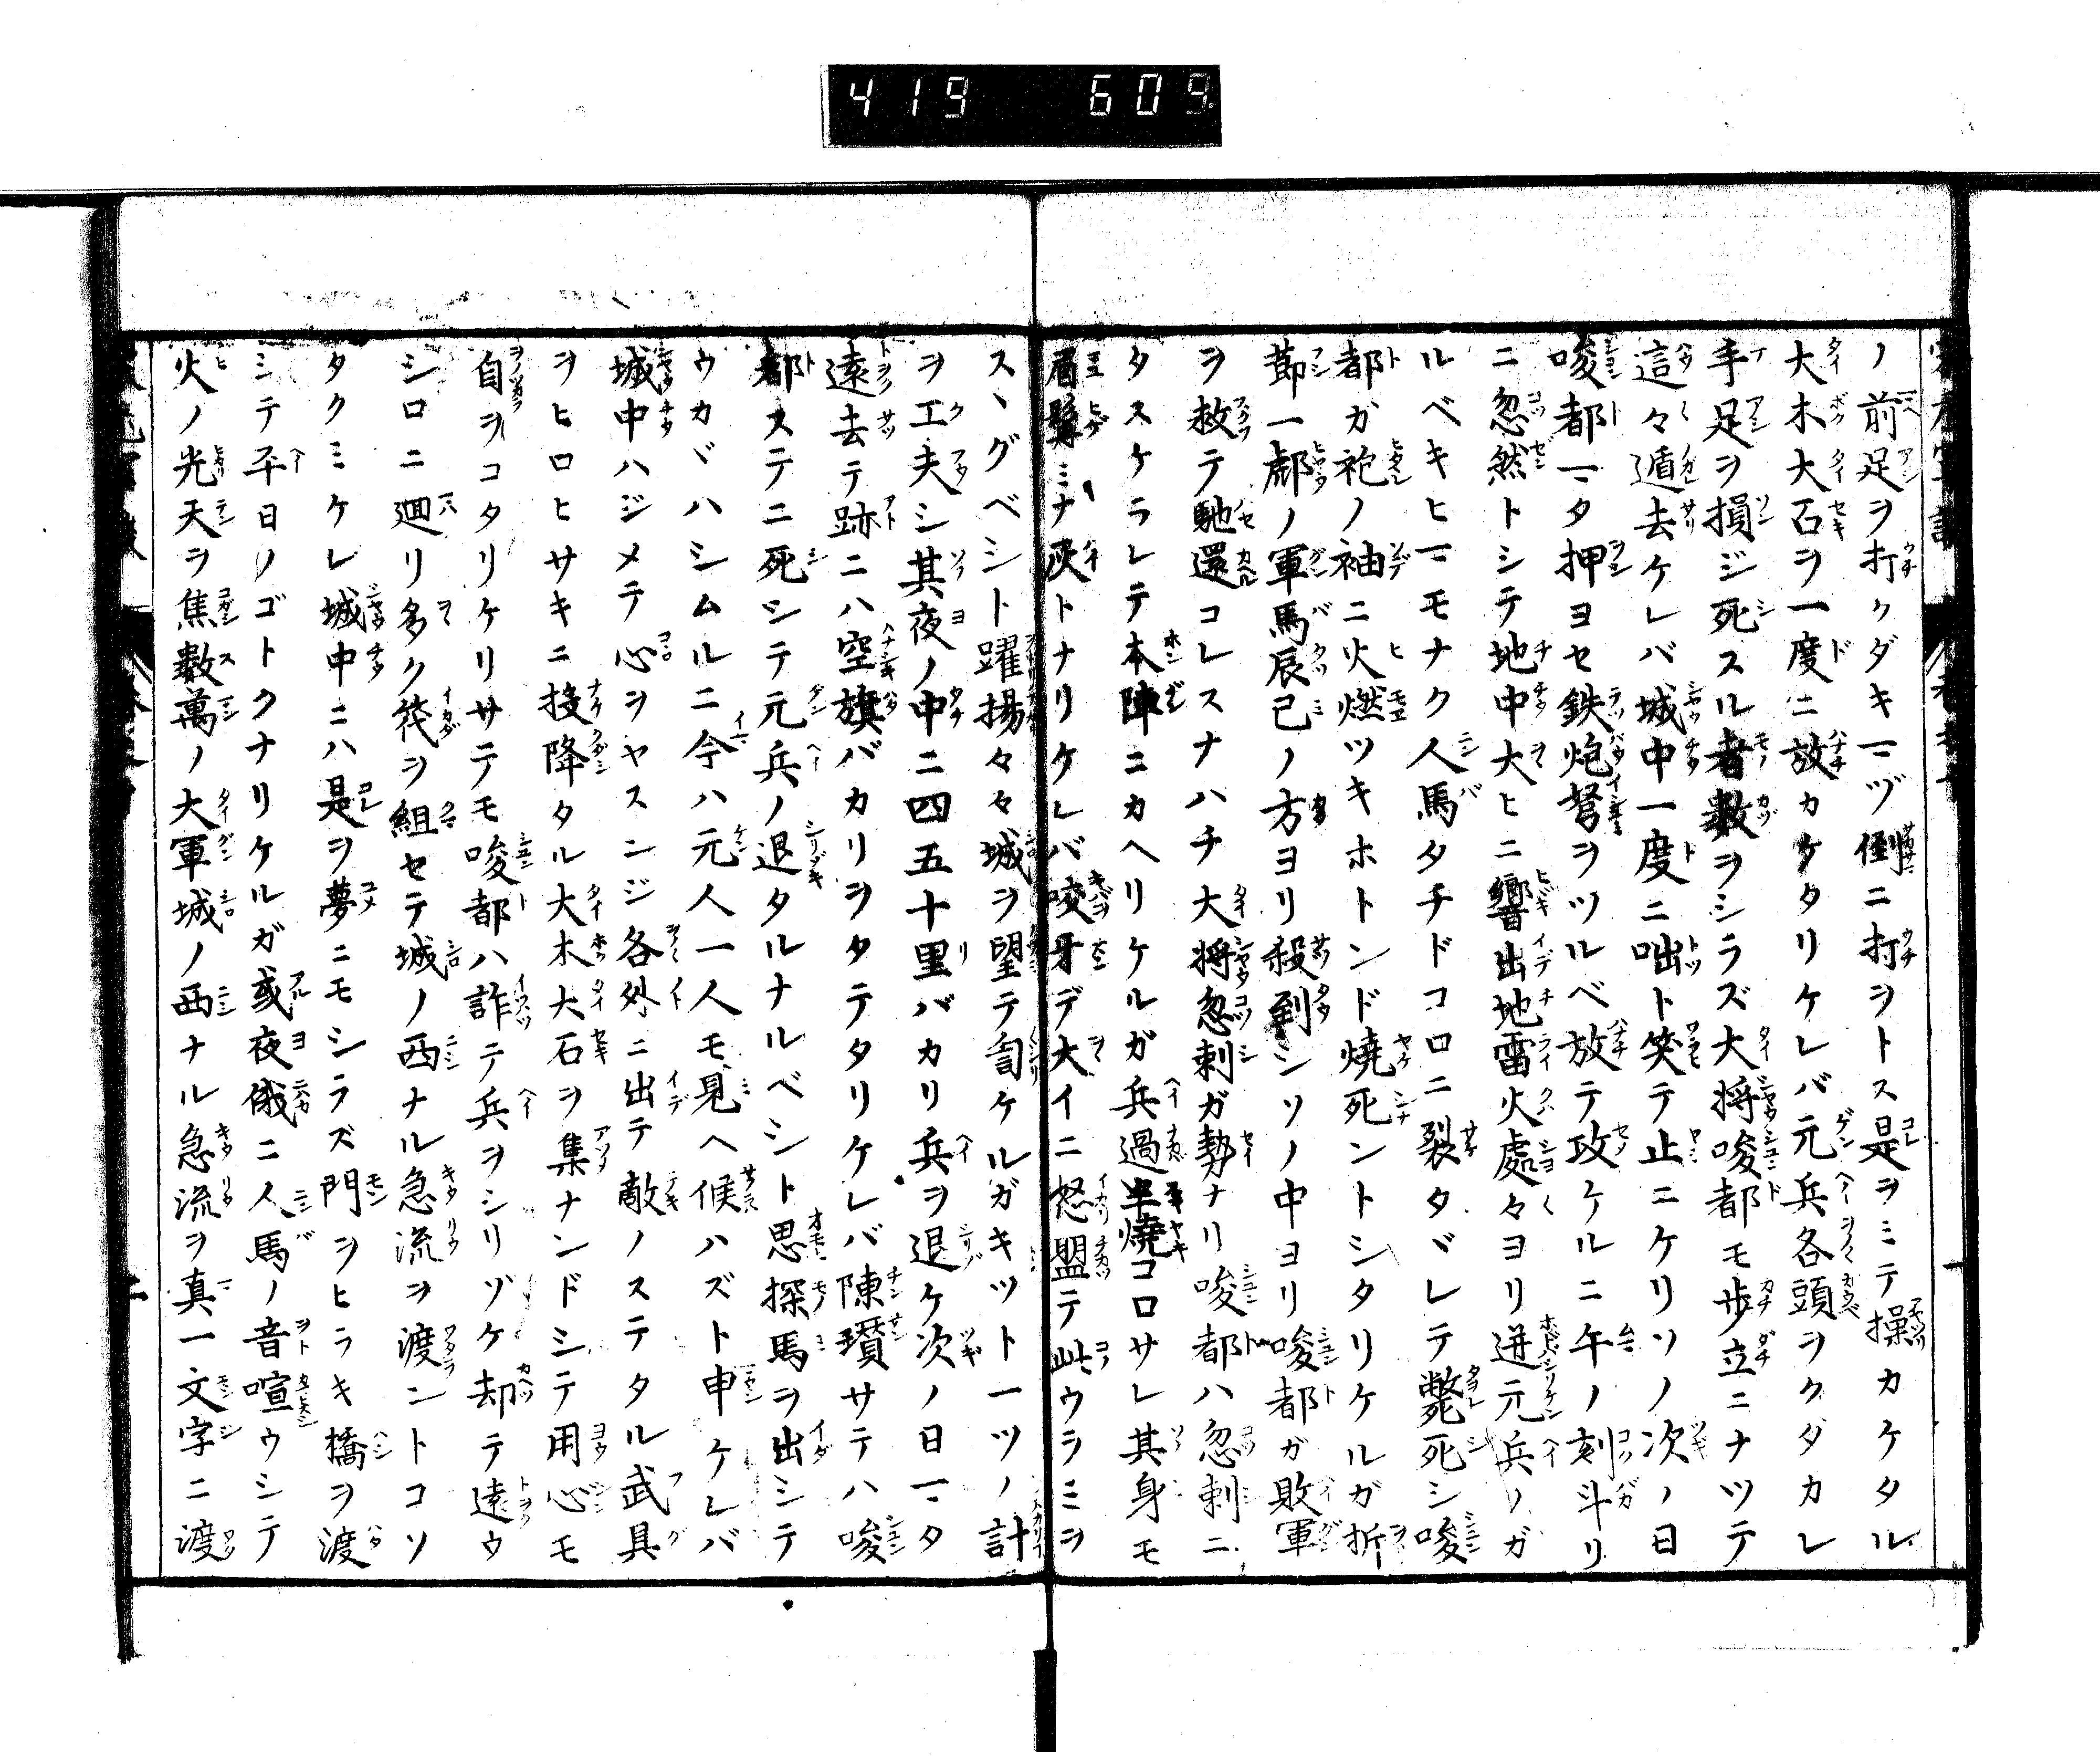 419 609
ノ前足ヲ打クダキマヅ倒ニ打ヲトス是ヲミテ操カケタル
大木大石ヲ一度ニ放カケタリケレバ元兵各頭ヲクダカレ
手足ヲ損ジ死スル者数ヲシラズ大将唆都モ歩立ニナツテ
這々遁去ケレバ城中一度ニ咄ト笑テ止ニケリソノ次ノ日
唆都マタ押ヨセ鉄炮弩ヲツルベ放テ攻ケルニ午ノ刻斗リ
ニ忽然トシテ地中大ヒニ響出地雷火處々ヨリ迸元兵ノガ
ルベキヒマモナク人馬タチドコロニ裂タヾレテ斃死シ唆
都ガ袍ノ袖ニ火燃ツキホトンド焼死ントシタリケルガ折
節一彪ノ軍馬辰巳ノ方ヨリ殺到シソノ中ヨリ唆都ガ敗軍
ヲ救テ馳還コレスナハチ大将忽剌ガ勢ナリ唆都ハ忽剌ニ
タスケラレテ本陣ニカヘリケルガ兵過半焼コロサレ其身モ
眉鬚ミナ灰トナリケレバ咬牙デ大イニ怒盟テ此ウラミヲ
スヽグベシト躍揚々々城ヲ望テ訇ケルガキツト一ツノ計
ヲエ夫シ其夜ノ中ニ四五十里バカリ兵ヲ退ケ次ノ日マタ
遠去テ跡ニハ空旗バカリヲタテタリケレバ陳瓚サテハ唆
都ステニ死シテ元兵ノ退タルナルベシト思探馬ヲ出シテ
ウカヾハシムルニ今ハ元人一人モ見ヘ候ハズト申ケレバ
城中ハジメテ心ヲヤスンジ各外ニ出テ敵ノステタル武具
ヲヒロヒサキニ投降タル大木大石ヲ集ナンドシテ用心モ
自ヲコタリケリサテモ唆都ハ詐テ兵ヲシリヅケ却テ遠ウ
シロニ廻リ多ク筏ヲ組セテ城ノ西ナル急流ヲ渡ントコソ
タクミケレ城中ニハ是ヲ夢ニモシラズ門ヲヒラキ橋ヲ渡
シテ平日ノゴトクナリケルガ或夜俄ニ人馬ノ音喧ウシテ
火ノ光天ヲ焦数萬ノ大軍城ノ西ナル急流ヲ真一文字ニ渡